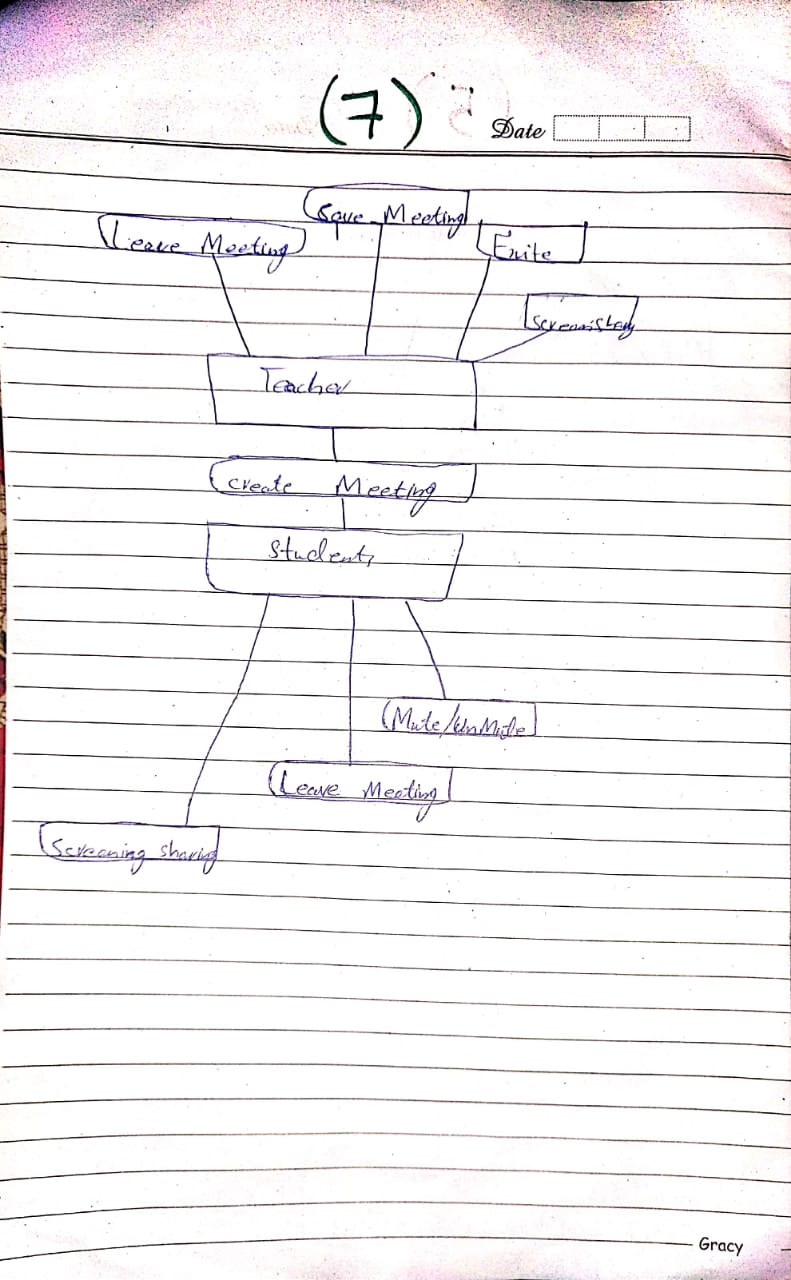 (7)
Date
Save Meeting
Leave Meeting
Exite
Teacher
create Meeting
Students
(Mute/UnMute
Leave Meeting
Screening sharing
Gracy